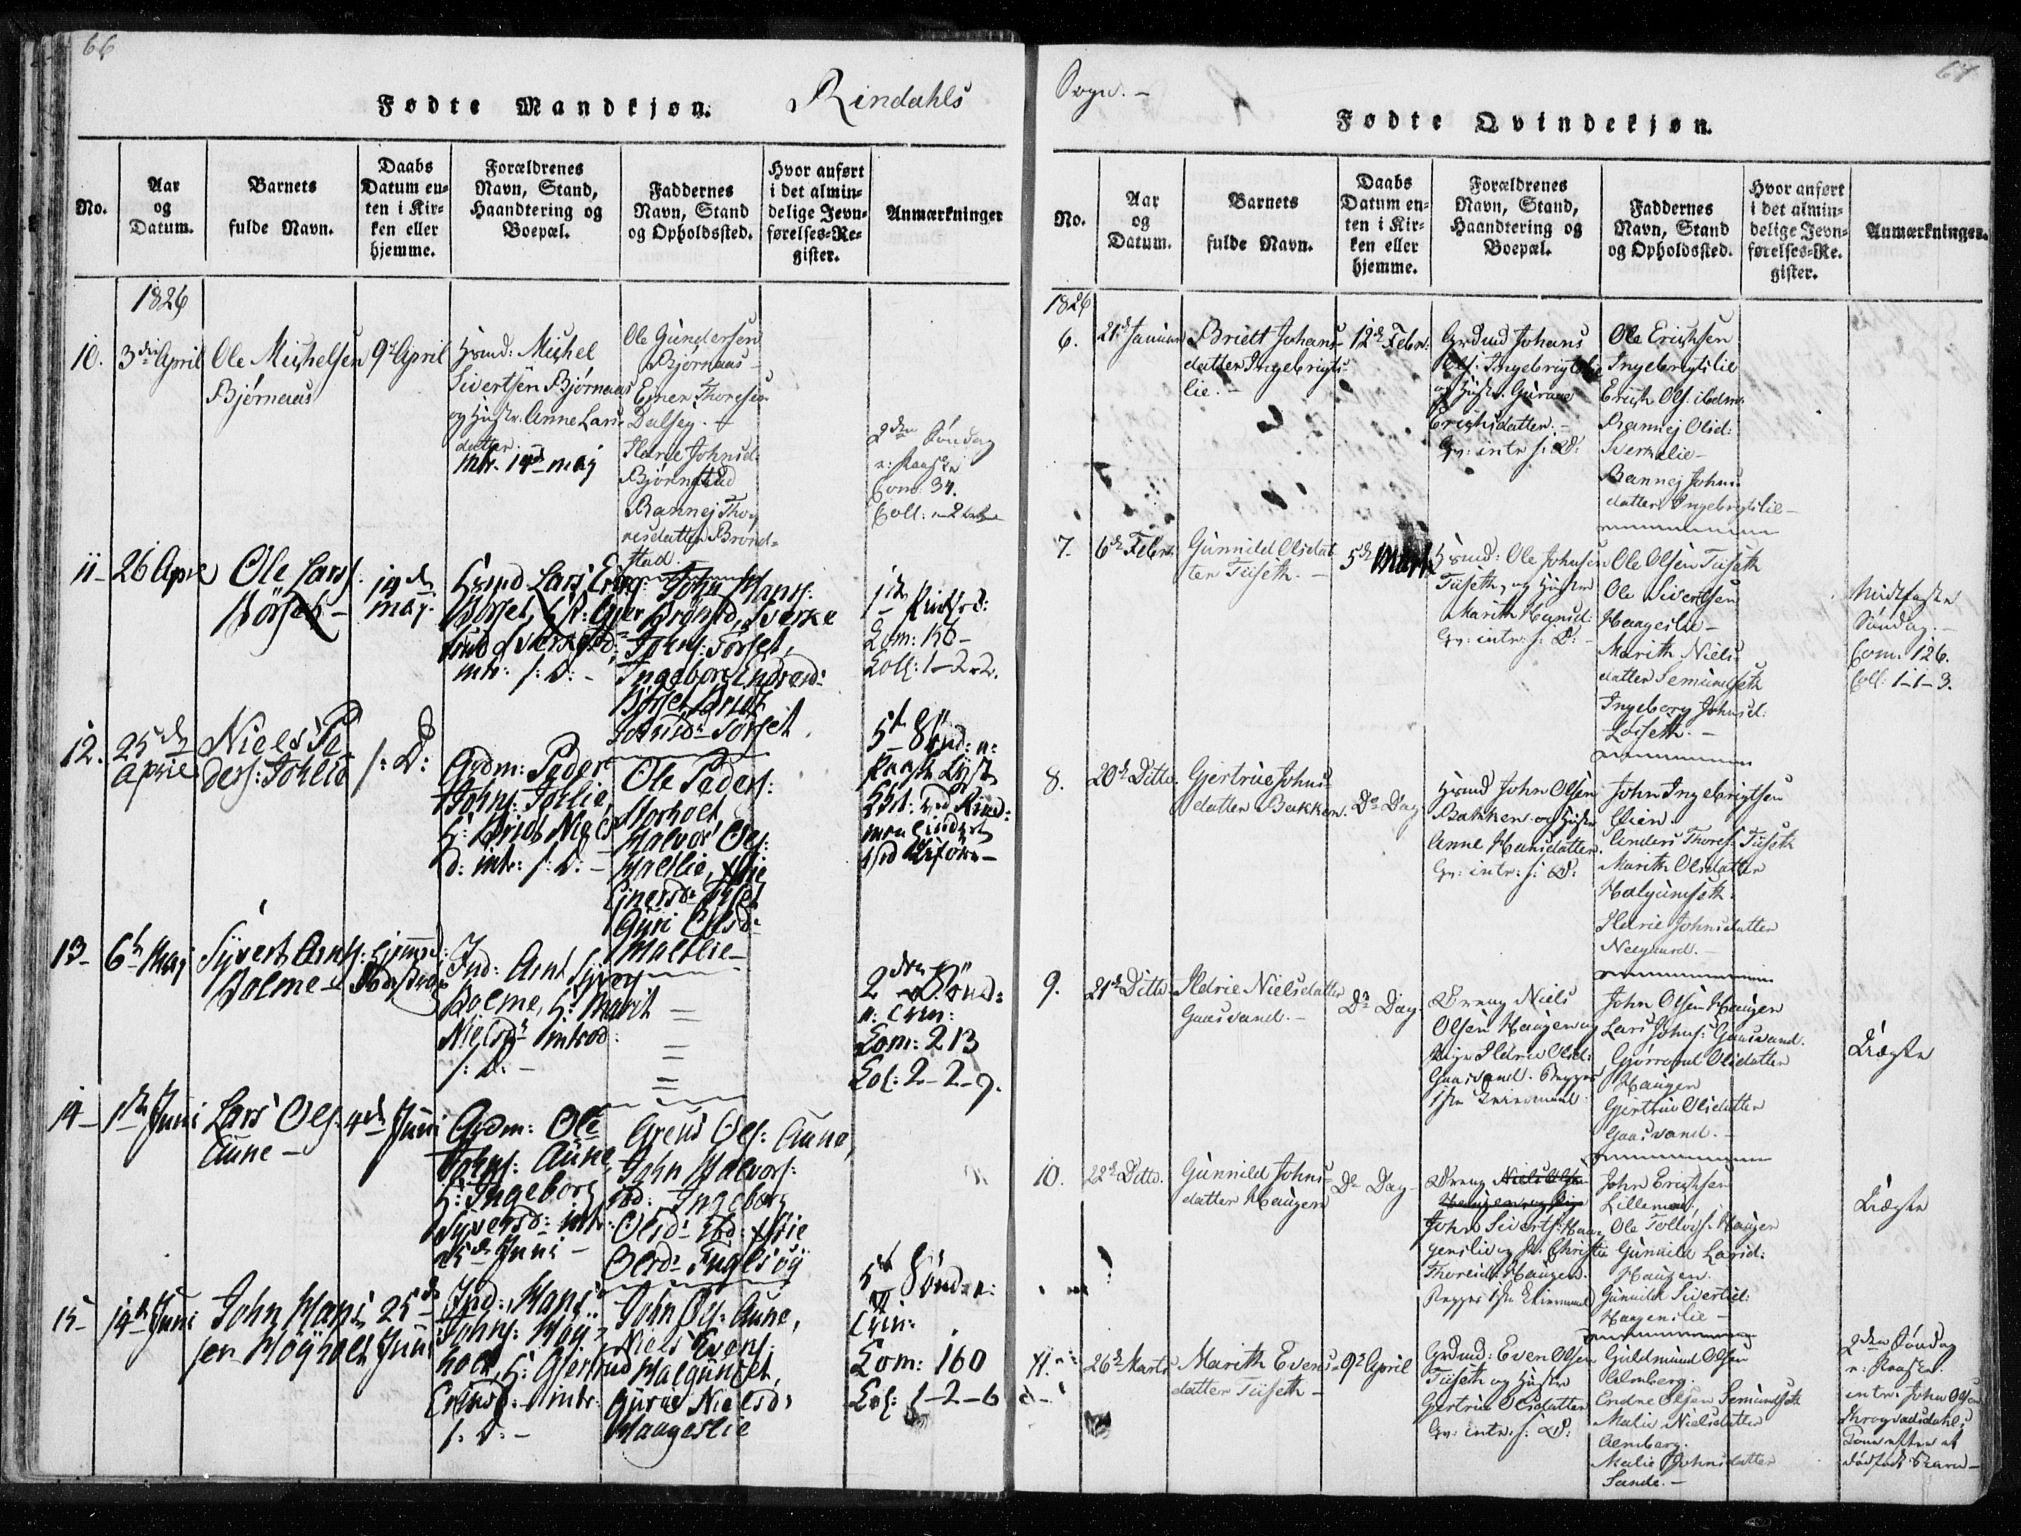 66
Fødte Mandkjøn.
Rindahls
No.
Aar
og
Datum.
Barnets
fulde Navn.
Daabs
Datum en-
ten i Kir-
ken eller
hjemme.
Forældrenes
Navn, Stand,
Haandtering og
Boepæl.
Faddernes
Navn, Stand
og Opholdssted.
Hvor anført
i det almin-
delige Jevn-
førelses-Re-
gister.
Anmærkninger
1826
10.
3die April
Ole Michelsen
Bjørnaas
9d April
Huusmd: Michel
Sivertsen Bjørnaas
og Hustr. Anne Lars-
datter.
intr. 14d maj
Ole Gundersen
Bjørnaas
Einer Thoresen
Dalseg.
Johnsd:
Bjørnstad
Rannej Tho-
resdatter Brønd-
stad.
2den Søndag
Com: 34.
11-
26 Apr
Ole Lars.
Børset-
14d
maj.
intr: s: D: -
John Hans:
Brønstd, Sverke
Johns: Torset,
Ingebor Endresd:
Børset,
Torset
Com: 156-
Coll: 1-2-2.
12.
25d
April
Niels Pe
ders: Johlie
s: D:
Gdm: Peder
Johns: Johlie,
H: Beret Niels
d: intr: s: D: -
Ole Peders:
Storholt
Halvor Ols:
Maltlie,
Einersd:
Guri Olsd:
Maltlie-
5t Sønd: n:
13-
6t Maj
Syvert Arns:
Bolme-
hjemmed:
Ind: Arnt Syver
Bolme, H: Marit
Nielsd: introd:
s: D: -
2den Sønd:
n: Trin:
Com: 213
Col: 2-2-9.
14-
1ste Juni
Lars Ols:
Aune-
4d Juni
Gdm: Ole
Johns: Aune
H: Ingeborg
Syversd: intr:
25d Juni-
Arent Ols: Aune,
John Halvors:
ibd: Ingeborg
Olsd: ibd:
Olsd: Fuglsøy
15-
14d Juni
John Hans
sen Høyholt
25d
Juni
Ind: Hans
Johns: Høy-
holt, H: Gjertrud
intr:
s: D: -
John Ols: Aune,
Niels Evens:
Halgunset,
Gurue Nielsd:
Haugeslie
5t Sønd: n:
Trin:
Com: 160
Col: 1-2-6
67
Sogn. -
Fødte Qvindekjøn.
No.
Aar
og
Datum.
Barnets
fulde Navn.
Daabs
Datum en-
ten i Kir-
ken eller
hjemme.
Forældrenes
Navn, Stand,
Haandtering og
Boepæl.
Faddernes
Navn, Stand
og Opholdssted.
Hvor anført
i det almin-
delige Jevn-
førelses-Re-
gister.
Anmærkninger.
1826
6.
21d Januar
Briett Johans-
datter Ingebrigts-
lie. -
12d Febr.
Grdmd Johans
Ols: Ingebrigtslie
og Hustr. Gurue
Erichsdatter. -
Gv: intr s: D:
Ole Erichsen
Ingebrigtslie
Erich Ols: ibdm:
Rannej Olsd:
Sverkelie-
Rannej Johns-
datter Ingebrigtslie-
7.
6d Febr.
Gunnild Olsdat-
ter Tiiseth. -
5d Marts
Huusmd: Ole Johnsen
Tiiseth, og Hustru
Marith Hansd:
Gv: intr: s: D: -
Ole Olsen Tiiseth
Ole Sivertsen
Haugeslie-
Marith Niels-
datter Semundseth
Ingeborg Johnsd:
Løfseth. -
Midfaste
Søndag. -
Com. 126.
Coll: 1-1-3.
8.
20d Ditto.
Gjertrue Johns-
datter Bakken.
Do Dag
Huusmd John Olsen
Bakken og Hustru
Anne Hansdatter.
Gv: intr: s: D:
John Ingebrigtsen
Anders Thores: Tiiseth
Marith Olsdatter
Halgumseth.
Ildrie Johnsdatter
Neegaard. -
9.
21d Ditto
Ildrie Nielsdatter
Gaasvand. -
Do Dag.
Dreng Niels
Olsen Haugen og
Pige Ildrie Olsd:
Gaasvand. Begges
1ste Leiermaal.
John Olsen Haugen
Lars Johns: Gaasvand.
Gjørand Olsdatter
Haugen
Gjertrue Olsdatter
Gaasvand. -
Uægte
10.
22d Ditto.
Gunnild Johns-
datter Haugen
Do Dag-
Dreng Niels Olsen
Haugen og Pige
John Siverts: Hau-
genslie og P: Christie
Thoresd: Haugen.
Begges 1ste Leiermaal
John Erichsen
Lillemoe.
Ole Tollevs: Haugen
Gunnild Larsd:
Haugen.
Gunnild Sivertsd:
Haugenslie-
Uægte
11.
26d Marts
Marith Evens-
datter Tiiseth-
9d April
Grdmd: Even Olsen
Tiiseth og Hustru
Gjertrue Olsdatter
Gv: intr: s: D:
Guldmund Olsen
Almberg.
Endre Olsen Semundseth
Malie Nielsdatter
Almberg.
Malie Johnsdatter
Sande. -
2den Søndag
n: Paaske.
intr: John Olsen
Kone efter et
dødfødt Barn-